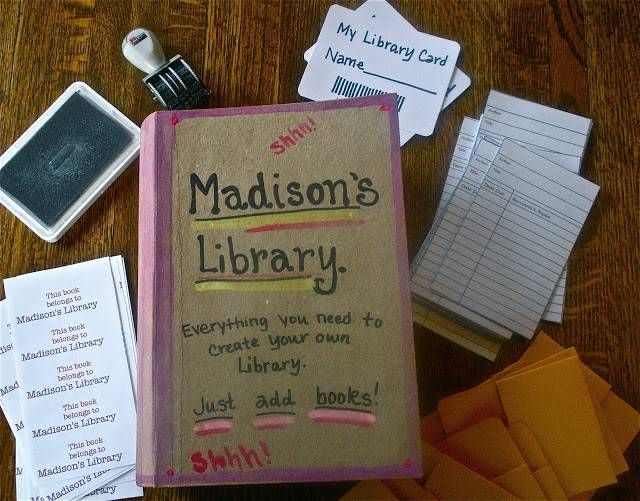 My Library Card
Name
Shhh!
Madison's
Library.
Everything you need to
create your own
Library.
Just add books!
Shhh!
This book
belongs to
Madison's Library
This book
belongs to
Madison's Library
This book
belongs to
Madison's Library
This book
belongs to
Madison's Library
This book
belongs to
Madison's Library
Author
Title
Author
Title
Author
Title
Date Due
Borrower's Name